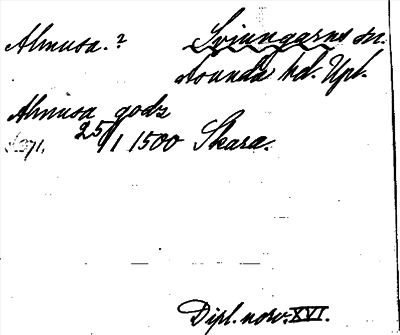 Almusa.? Sviungarns sn.
Asunda hd. Upl.
Almusa godz
25/1 1500 Skara.
Dipl. norv. XVI.